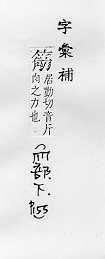 字彙補
居勤切音斤
肉之力也
部.下.
P.155